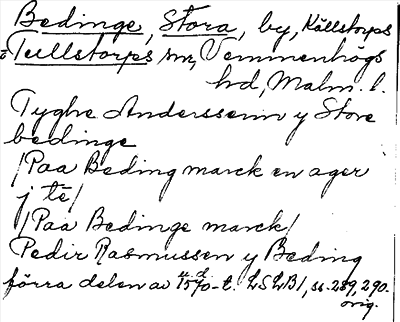 Bedinge, Stora, by, Källstorps
o Tullstorps snr, Vemmenhögs
hd, Malm. l.
Tyghe Anderssenn y Store
bedinge
/Paa Beding marck en ager
j tē/
/Paa Bedinge marck/
Pedir Rasmussen y Beding
förra delen av 1570-t. LSLB1, ss. 289, 290.
orig.